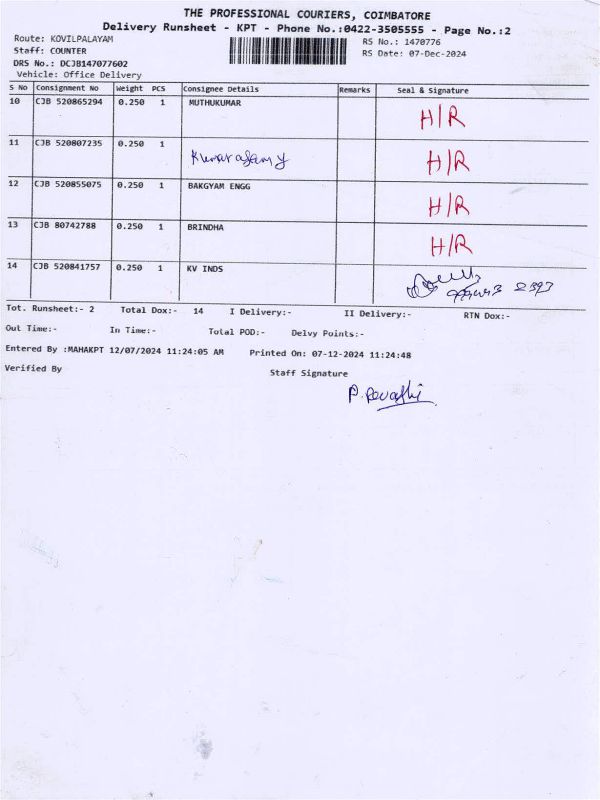 THE PROFESSIONAL COURIERS, COIMBATORE
Delivery Runsheet - KPT - Phone No.:0422-3505555 - Page No.:2
Route: KOVILPALAYAM
RS No.: 1470776
Staff: COUNTER
RS Date: 07-Dec-2024
DRS No.: DCJB147077602
Vehicle: Office Delivery
S No Consignment No Weight PCS Consignee Details Remarks Seal & Signature
10 CJB 520865294 0.250 1 MUTHUKUMAR H/R
11 CJB 520807235 0.250 1 H/R
12 CJB 520855075 0.250 1 BAKGYAM ENGG H/R
13 CJB 80742788 0.250 1 BRINDHA H/R
14 CJB 520841757 0.250 1 KV INDS
Tot. Runsheet:- 2 Total Dox:- 14 I Delivery:- II Delivery:- RTN Dox:-
Out Time:- In Time:- Total POD:- Delvy Points:-
Entered By :MAHAKPT 12/07/2024 11:24:05 AM Printed On: 07-12-2024 11:24:48
Verified By
Staff Signature
P. Revathi